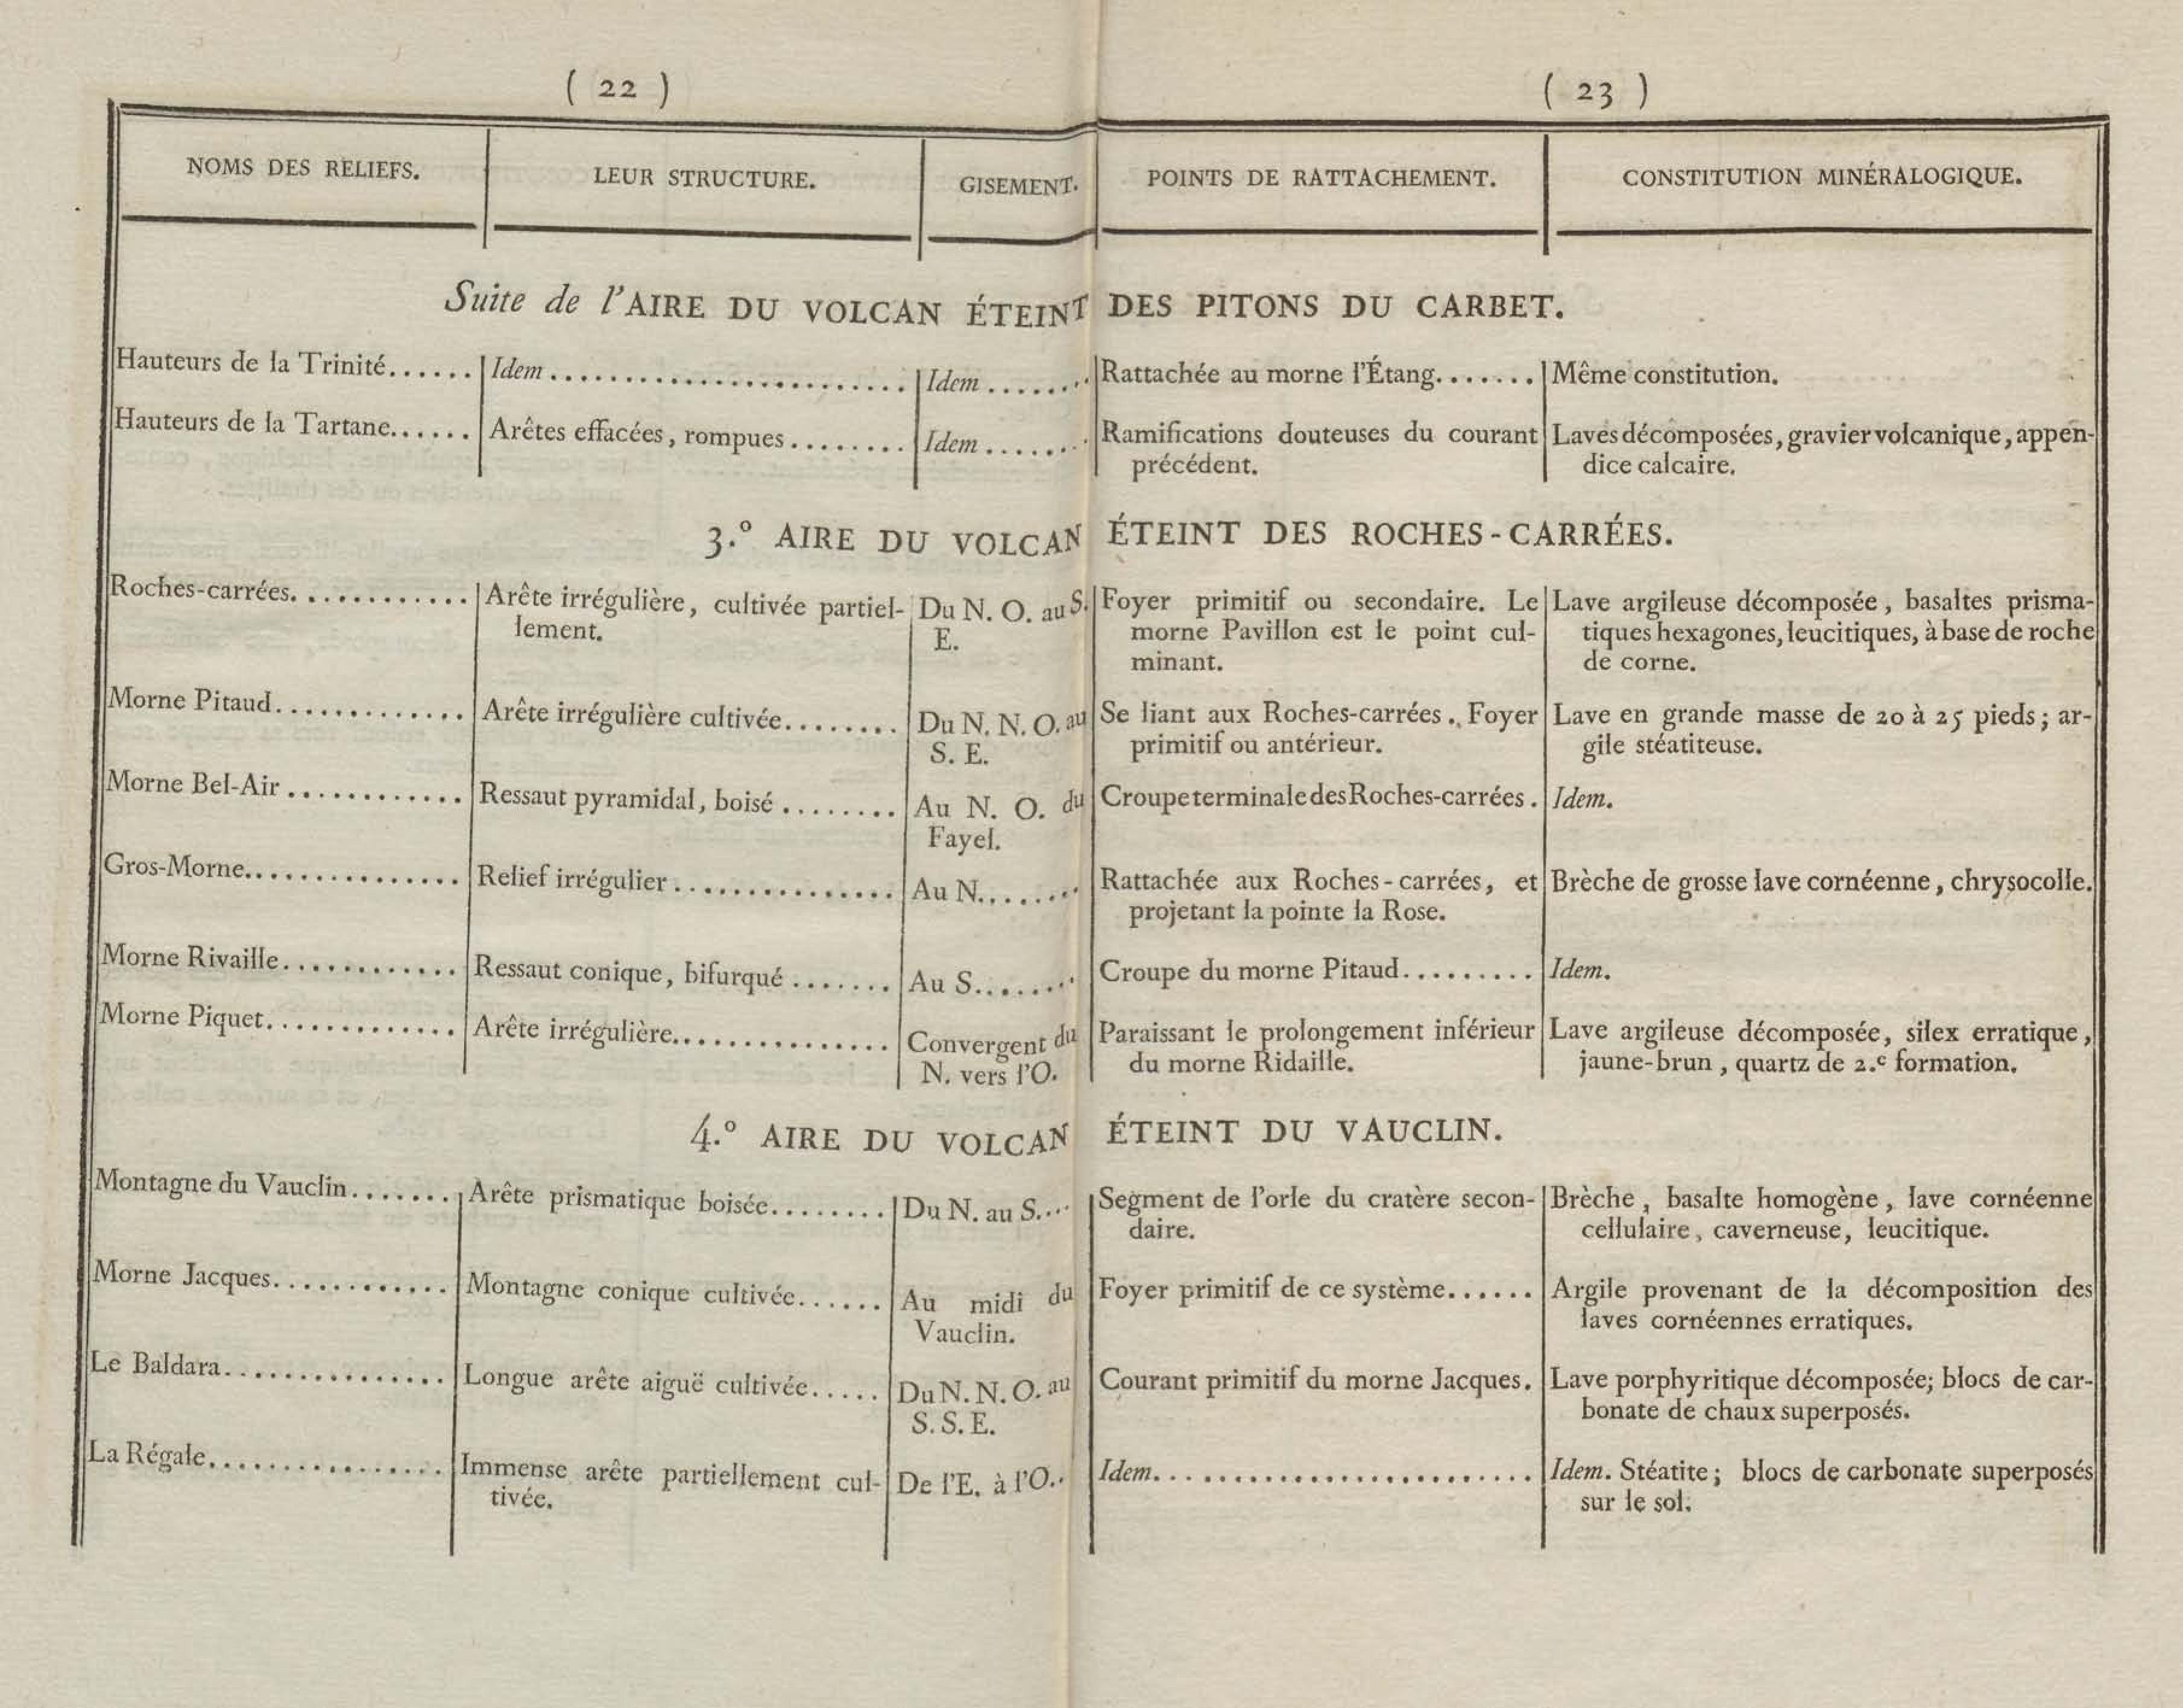 ( 22 )
( 23 )
NOMS DES RELIEFS.
LEUR STRUCTURE.
GISEMENT.
POINTS DE RATTACHEMENT.
CONSTITUTION MINÉRALOGIQUE.
Suite de l'AIRE DU VOLCAN ÉTEINT DES PITONS DU CARBET.
Hauteurs de la Trinité......
Idem........................
Idem.......
Rattachée au morne l'Étang.......
Même constitution.
Hauteurs de la Tartane......
Arêtes effacées, rompues........
Idem.......
Ramifications douteuses du courant
précédent.
Laves décomposées, gravier volcanique, appen-
dice calcaire.
3.º AIRE DU VOLCAN ÉTEINT DES ROCHES-CARRÉES.
Roches-carrées............
Arête irrégulière, cultivée partiel-
lement.
Du N. O. au S.
E.
Foyer primitif ou secondaire. Le
morne Pavillon est le point cul-
minant.
Lave argileuse décomposée, basaltes prisma-
tiques hexagones, leucitiques, à base de roche
de corne.
Morne Pitaud.............
Arête irrégulière cultivée........
Du N. N. O. au
S. E.
Se liant aux Roches-carrées. Foyer
primitif ou antérieur.
Lave en grande masse de 20 à 25 pieds; ar-
gile stéatiteuse.
Morne Bel-Air............
Ressaut pyramidal, boisé........
Au N. O. du
Fayel.
Croupe terminale des Roches-carrées.
Idem.
Gros-Morne...............
Relief irrégulier...............
Au N.......
Rattachée aux Roches-carrées, et
projetant la pointe la Rose.
Brèche de grosse lave cornéenne, chrysocolle.
Morne Rivaille............
Ressaut conique, bifurqué.......
Au S.......
Croupe du morne Pitaud.........
Idem.
Morne Piquet.............
Arête irrégulière...............
Convergent du
N. vers l'O.
Paraissant le prolongement inférieur
du morne Ridaille.
Lave argileuse décomposée, silex erratique,
jaune-brun, quartz de 2.e formation.
4.º AIRE DU VOLCAN ÉTEINT DU VAUCLIN.
Montagne du Vauclin.......
Arête prismatique boisée........
Du N. au S....
Segment de l'orle du cratère secon-
daire.
Brèche, basalte homogène, lave cornéenne
cellulaire, caverneuse, leucitique.
Morne Jacques............
Montagne conique cultivée......
Au midi du
Vauclin.
Foyer primitif de ce système......
Argile provenant de la décomposition des
laves cornéennes erratiques.
Le Baldara...............
Longue arête aiguë cultivée.....
Du N. N. O. au
S. S. E.
Courant primitif du morne Jacques.
Lave porphyritique décomposée; blocs de car-
bonate de chaux superposés.
La Régale................
Immense arête partiellement cul-
tivée.
De l'E. à l'O..
Idem.........................
Idem. Stéatite; blocs de carbonate superposés
sur le sol.